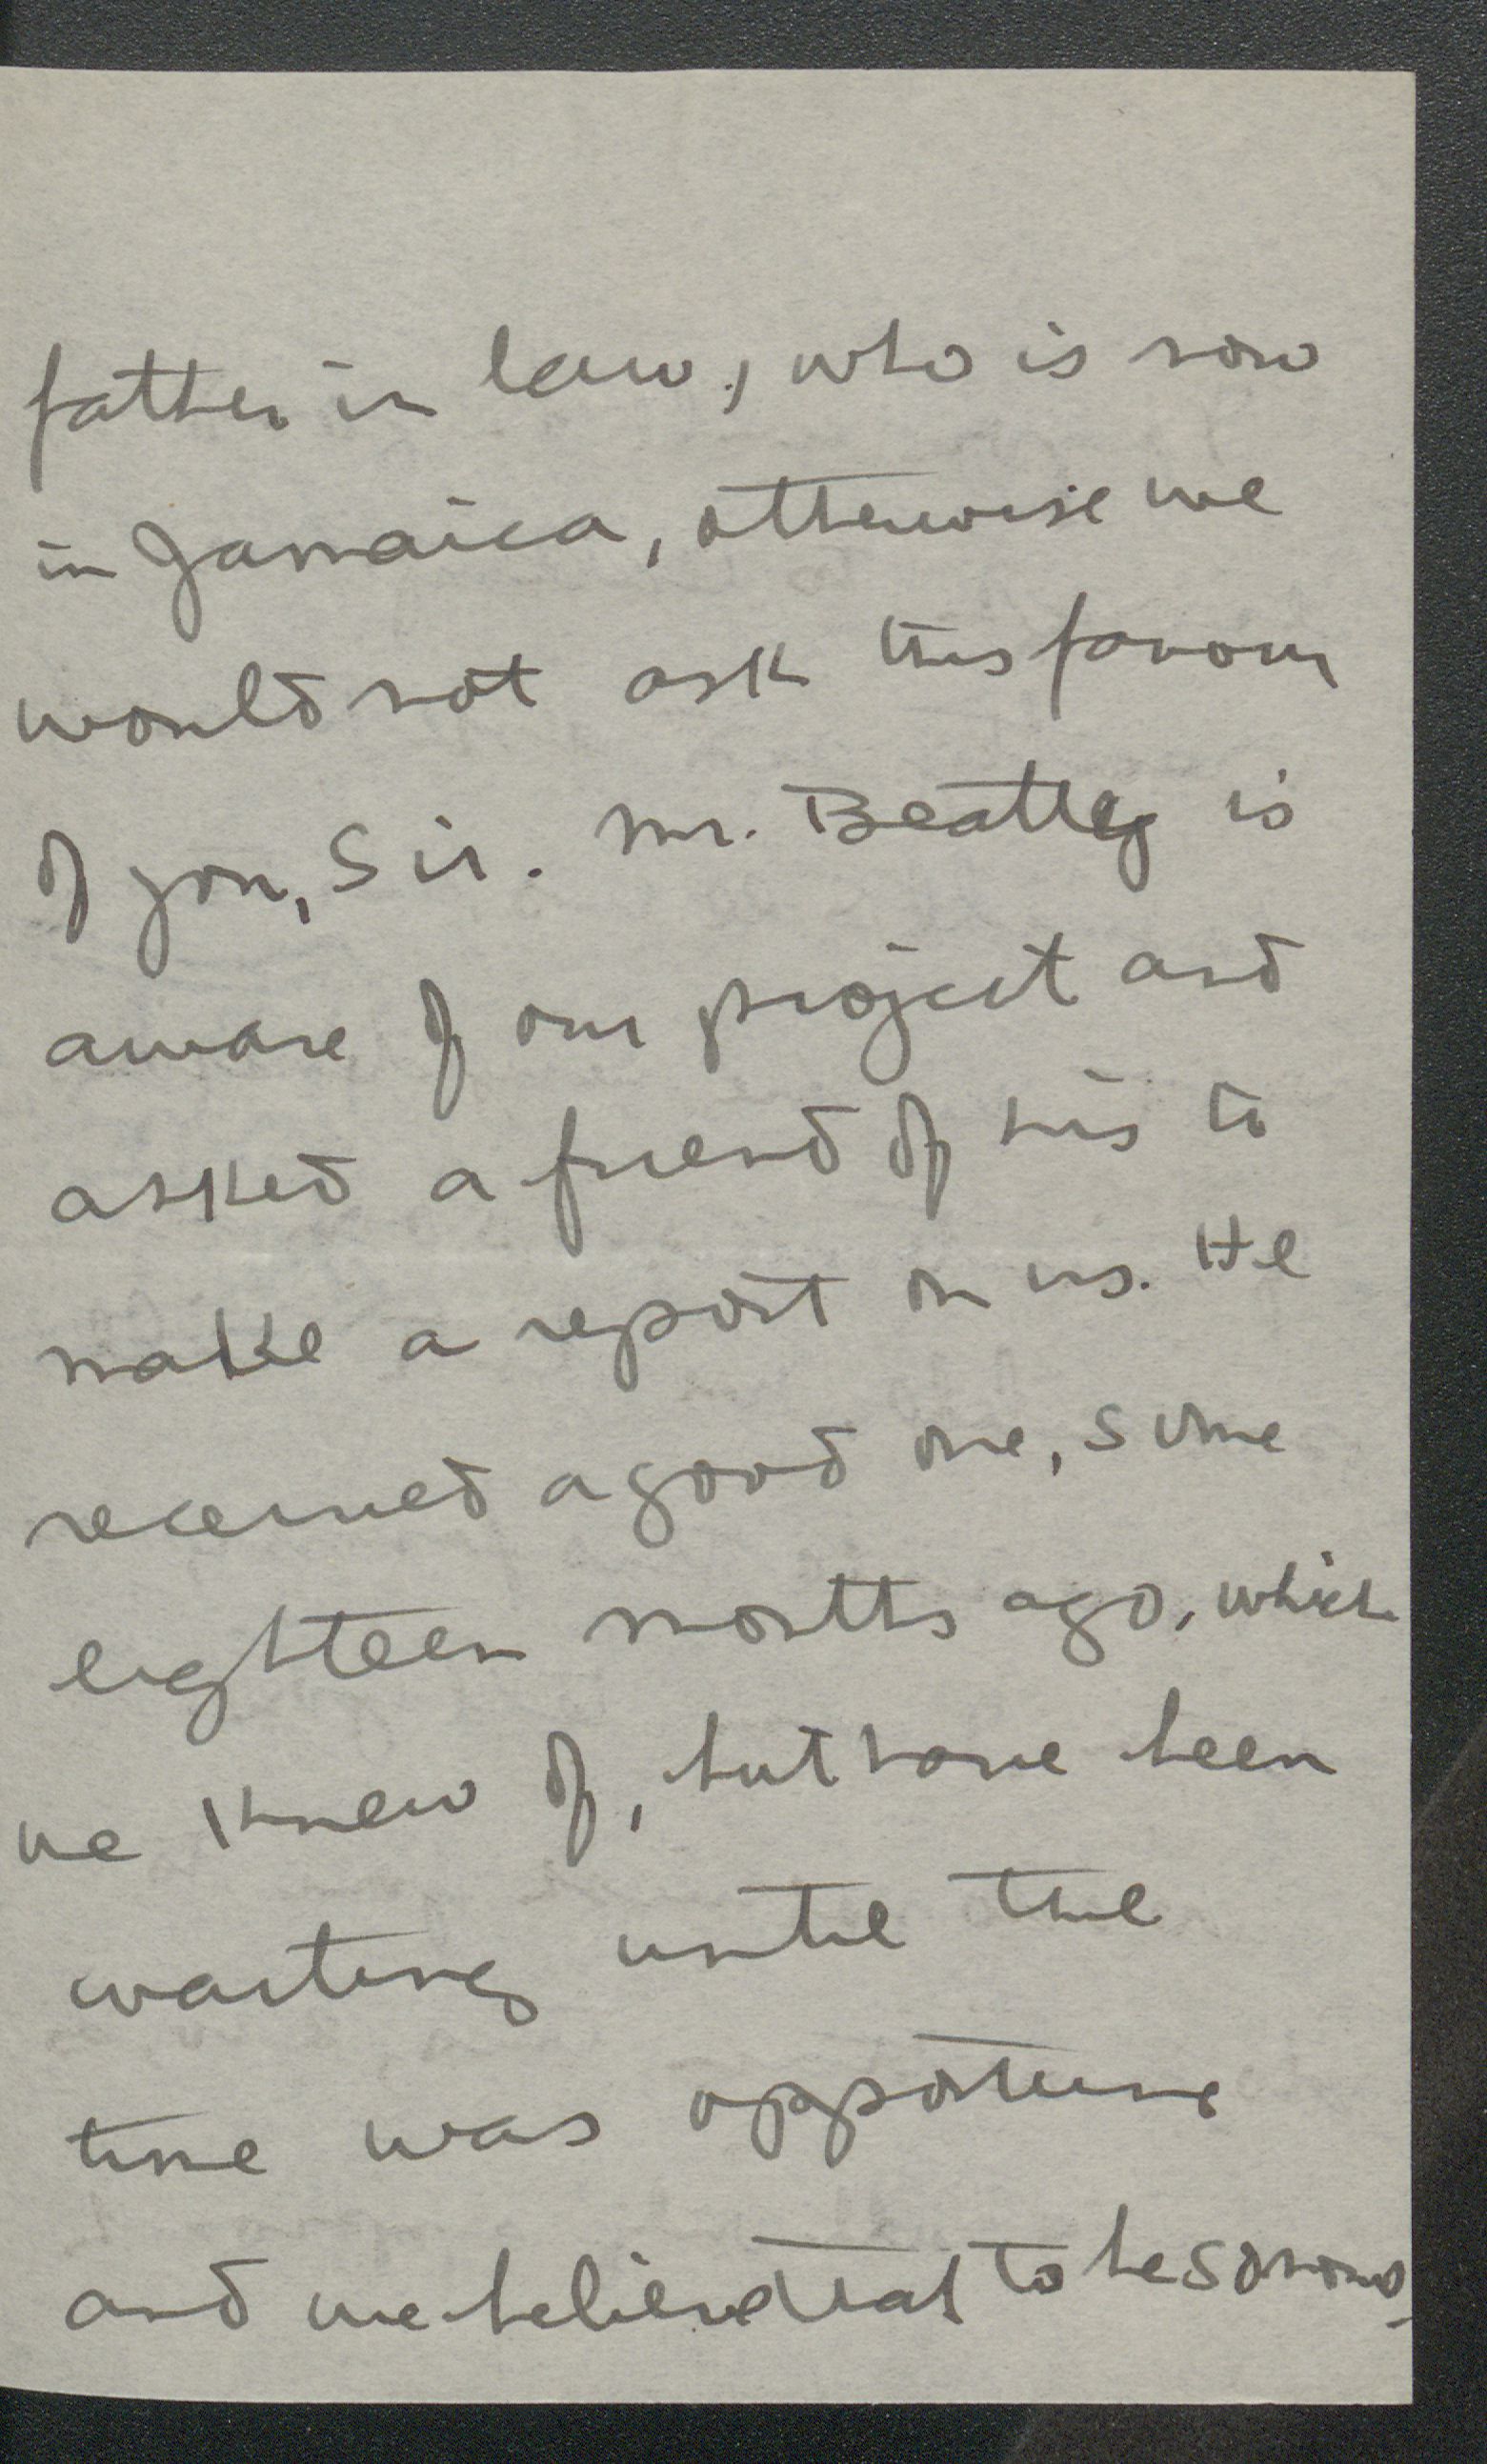 father in law, who is now
in Jamaica, otherwise we
would not ask this favour
of you, Sir. Mr. Beatty is
aware of our project and
asked a friend of his to
make a report on us. He
received a good one, some
eighteen months ago, which
we knew of, but have been
waiting until the
time was opportune
and we believe that to be so now.